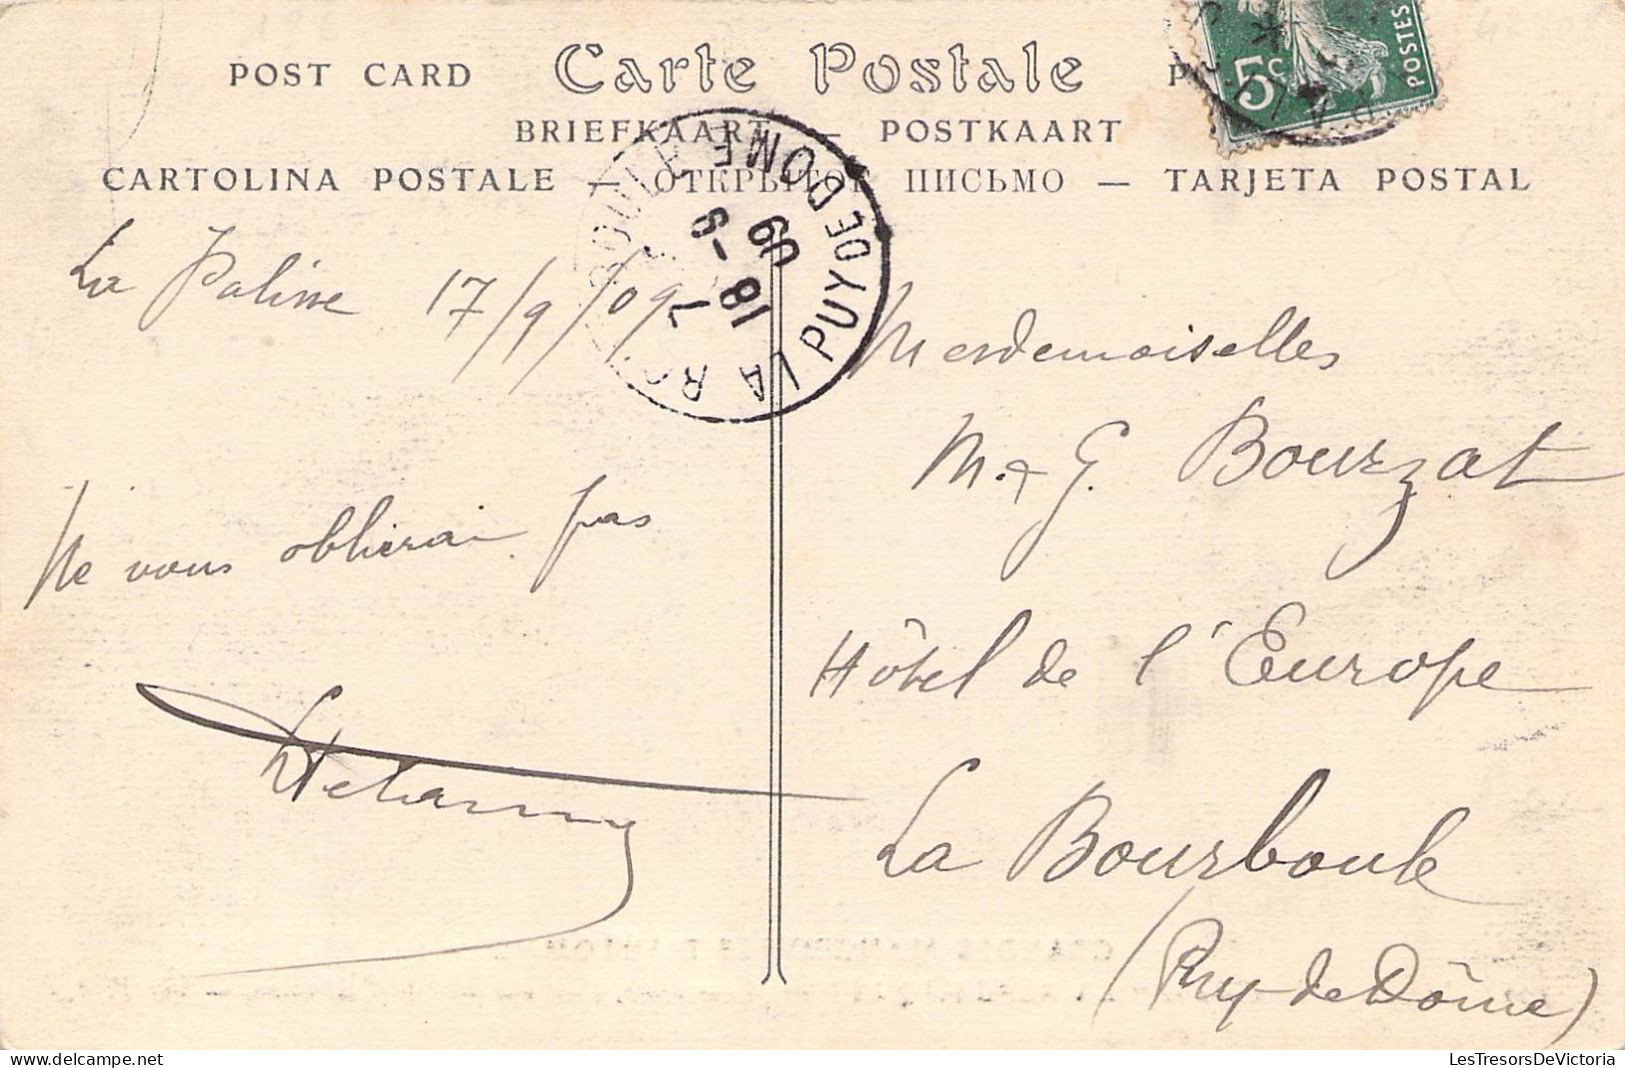 POST CARD Carte Postale
5c POSTES
BRIEFKAART — POSTKAART
CARTOLINA POSTALE — ОТКРЫТОЕ ПИСЬМО — TARJETA POSTAL
LA BOURBOULE PUY DE DOME
7 18 - 9 09
La Palisse 17/9/09
Ne vous oublierai pas
Mesdemoiselles
M. & G. Bourzat
Hôtel de l'Europe
La Bourboule
(Puy-de-Dôme)
LesTresorsDeVictoria